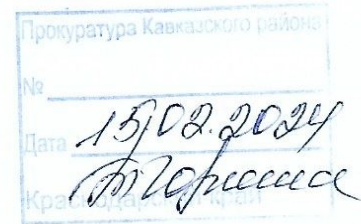 Прокуратура Кавказского района
№
Дата 15/02.2024
Краснодарский край